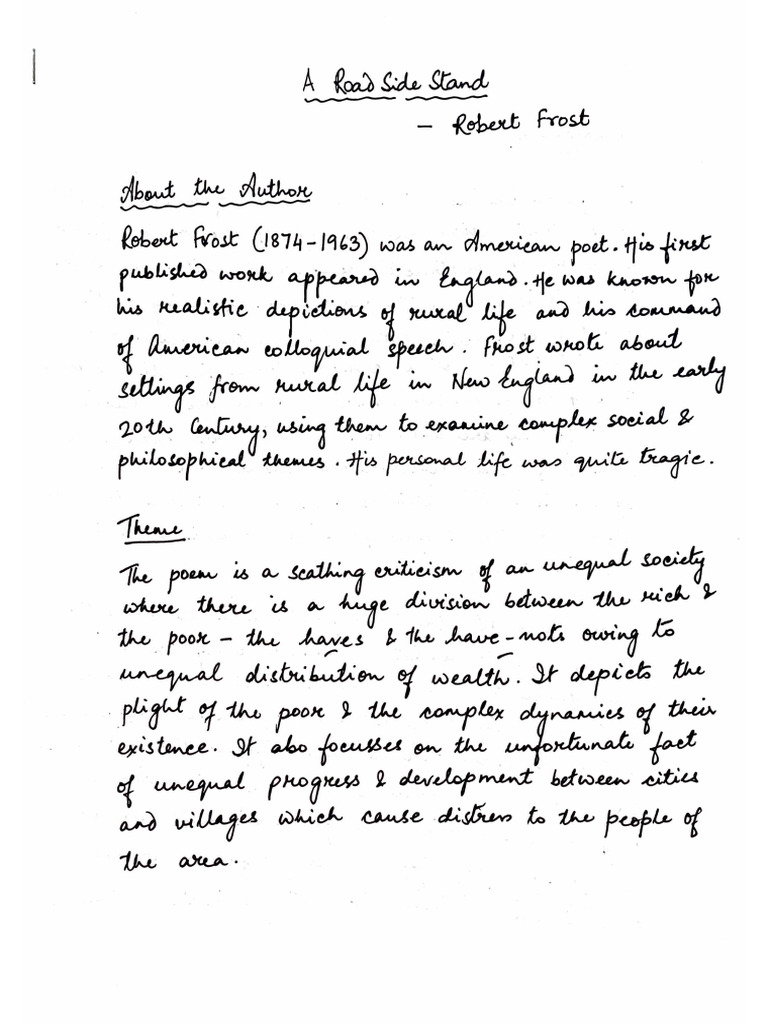 A Road Side Stand
- Robert Frost
About the Author
Robert Frost (1874-1963) was an American poet. His first
published work appeared in England. He was known for
his realistic depictions of rural life and his command
of American colloquial speech. Frost wrote about
settings from rural life in New England in the early
20th Century, using them to examine complex social &
philosophical themes. His personal life was quite tragic.
Theme
The poem is a scathing criticism of an unequal society
where there is a huge division between the rich &
the poor - the haves & the have-nots owing to
unequal distribution of wealth. It depicts the
plight of the poor & the complex dynamics of their
existence. It also focusses on the unfortunate fact
of unequal progress & development between cities
and villages which cause distress to the people of
the area.